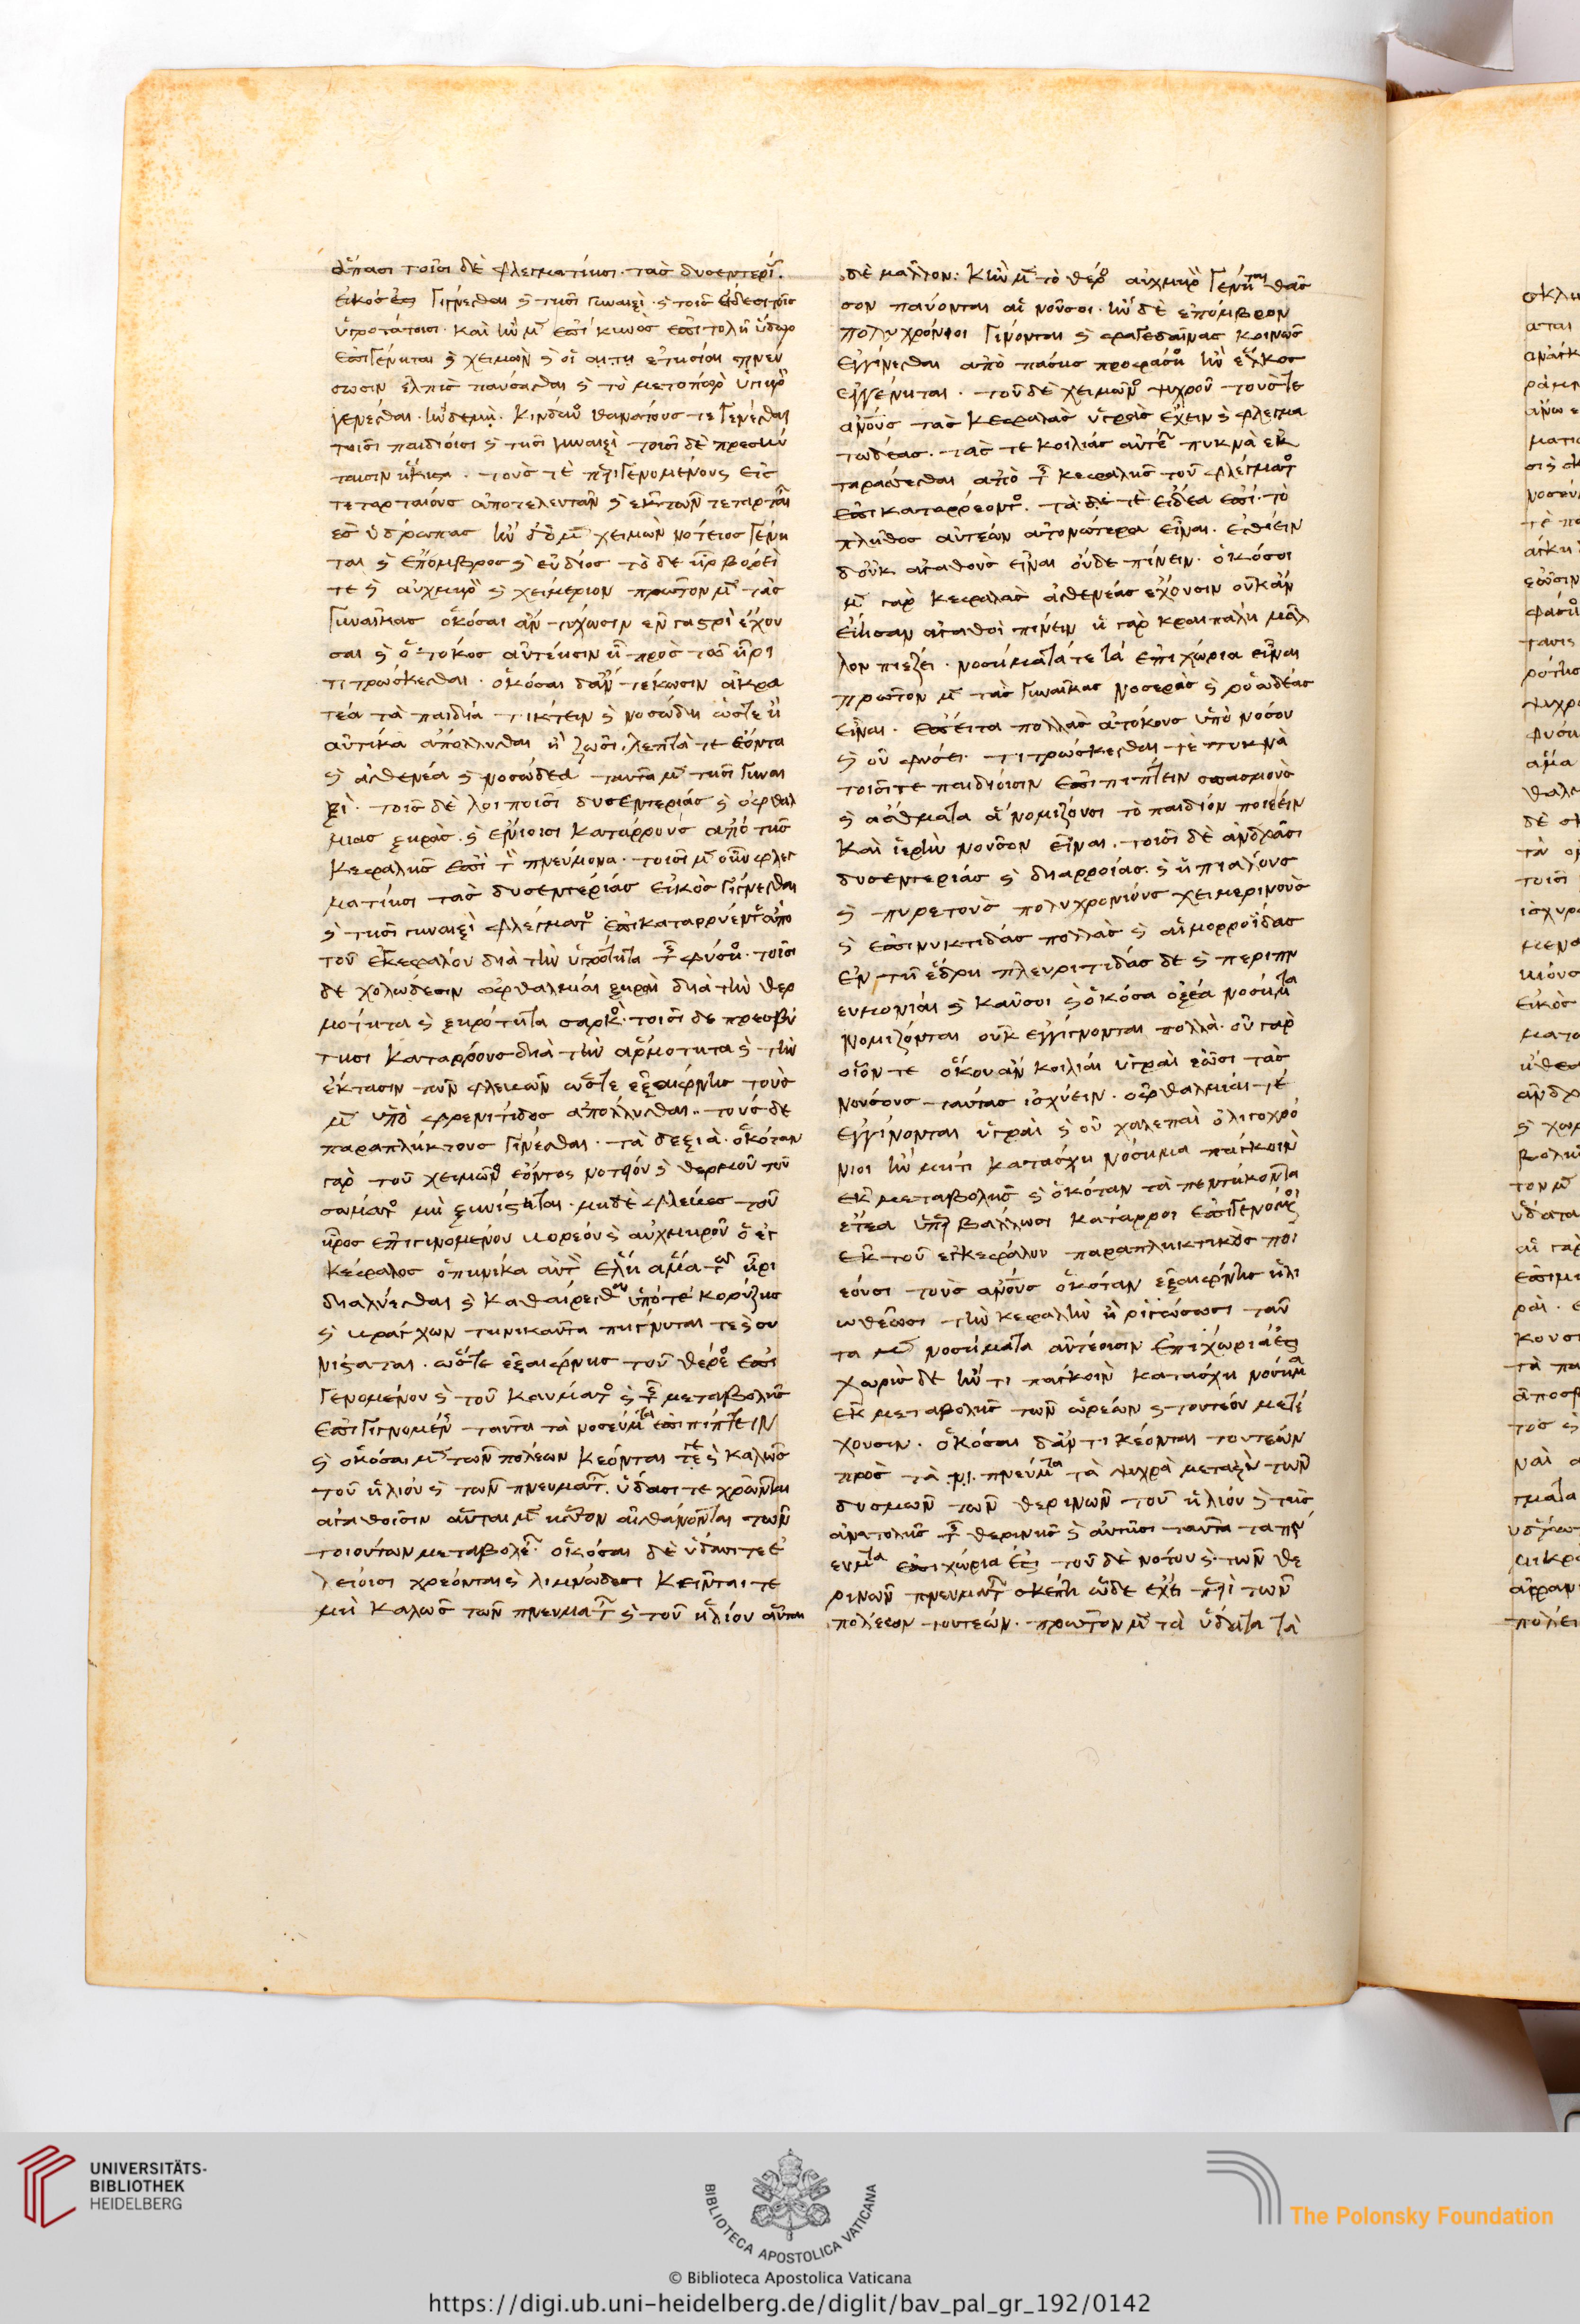 ἅπασι τοῖσι δὲ φλεγματίησι. τὰς δυσεντερί
εἰκός ἐστι γίγνεσθαι καὶ τῆσι γυναιξὶ. καὶ τοῖς εἴδεσι τοῖς
ὑγροτάτοισι. καὶ ἢν μὲν ἐπὶ κυνὸς ἐπιτολῆ ὕδωρ
ἐπιγένηται καὶ χειμὼν καὶ οἱ ἐτησίαι πνεύ
σωσιν ἐλπὶς παύσασθαι καὶ τὸ μετόπωρον ὑγιηρὸν
γενέσθαι. ἢν δὲ μὴ. κίνδυνος θανάτους τε γενέσθαι
τοῖσι παιδίοισι καὶ τῆσι γυναιξὶ τοῖσι δὲ πρεσβύ
ταισιν ἥκιστα. τούς τε περιγενομένους εἰς
τεταρταίους ἀποτελευτᾶν καὶ ἐκ τῶν τεταρταίων
ἐς ὕδρωπας ἢν δ' ὁ μὲν χειμὼν νότειος γένη
ται καὶ ἔπομβρος καὶ εὔδιος τὸ δὲ ἦρ βόρει
τε καὶ αὐχμηρὸν καὶ χειμέριον πρῶτον μὲν τὰς
γυναῖκας ὁκόσαι ἂν τύχωσιν ἐν γαστρὶ ἔχου
σαι καὶ ὁ τόκος αὐτέηισιν ᾖ πρὸς τὸ ἦρι
τιτρώσκεσθαι. ὁκόσαι δ' ἂν τέκωσιν ἀκρα
τέα τὰ παιδία τίκτειν καὶ νοσώδη ὥστε ἢ
αὐτίκα ἀπόλλυσθαι ἢ ζῶσι, λεπτά τε ἐόντα
καὶ ἀσθενέα καὶ νοσώδεα ταῦτα μὲν τῆσι γυναι
ξὶ. τοῖσι δὲ λοιποῖσι δυσεντερίας καὶ ὀφθαλ
μίας ξηρὰς. καὶ ἐνίοισι καταρρόους ἀπὸ τῆς
κεφαλῆς ἐπὶ τὸν πνεύμονα. τοῖσι μὲν οὖν φλεγ
ματίησι τὰς δυσεντερίας εἰκὸς γίγνεσθαι
καὶ τῆσι γυναιξὶ φλέγματος ἐπικαταρρυέντος ἀπὸ
τοῦ ἐγκεφάλου διὰ τὴν ὑγρότητα τῆς φύσιος. τοῖσι
δὲ χολώδεσιν ὀφθαλμίαι ξηραὶ διὰ τὴν θερ
μότητα καὶ ξηρότητα σαρκὸς. τοῖσι δὲ πρεσβύ
τησι καταρρόους διὰ τὴν ἀρμότητα καὶ τὴν
ἔκτασιν τῶν φλεβῶν ὥστε ἐξαίφνης τοὺς
μὲν ὑπὸ φρενίτιδος ἀπόλλυσθαι. τοὺς δὲ
παραπλήκτους γίνεσθαι. τὰ δεξιὰ. ὁκόταν
γὰρ τοῦ χειμῶνος ἐόντος νοτίου καὶ θερμοῦ τοῦ
σώματος μὴ ξυνίστηται. μηδὲ φλέβες τοῦ
ἦρος ἐπιγινομένου βορέου καὶ αὐχμηροῦ ὁ ἐγ
κέφαλος ὁπηνίκα αὐτὸν ἔδει ἅμα τῶ ἦρι
διαλύεσθαι καὶ καθαίρεσθαι ὑπό τε κορύζης
καὶ βράγχων τηνικαῦτα πήγνυταί τε καὶ συ
νίσταται. ὥστε ἐξαίφνης τοῦ θέρεος ἐπι
γενομένου καὶ τοῦ καύματος καὶ τῆς μεταβολῆς
ἐπιγιγνομένης ταῦτα τὰ νοσεύματα ἐπιπίπτειν
καὶ ὁκόσαι μὲν τῶν πολέων κέονταί τε καὶ καλῶς
τοῦ ἡλίου καὶ τῶν πνευμάτων. ὕδασί τε χρῶνται
ἀγαθοῖσιν αὗται μὲν ἧττον αἰσθάνονται τῶν
τοιούτων μεταβολέων. ὁκόσαι δὲ ὕδασί τε ἑ
λείοισι χρέονται καὶ λιμνώδεσι κεῖνταί τε
μὴ καλῶς τῶν πνευμάτων καὶ τοῦ ἡλίου αὗται
δὲ μᾶλλον: κἢν μὲν τὸ θέρος αὐχμηρὸν γένηται θᾶς
σον παύονται αἱ νοῦσοι. ἢν δὲ ἔπομβρον
πολυχρόνιοι γίνονται καὶ φαγεδαίνας κοινῶς
ἐγγίνεσθαι ἀπὸ πάσης προφάσιος ἢν ἕλκος
ἐγγένηται. τοῦ δὲ χειμῶνος ψυχροῦ τούς τε
ἀνούς τὰς κεφαλὰς ὑγρὰς ἔχειν καὶ φλεγμα
τώδεας. τάς τε κοιλίας αὐτέων πυκνὰ ἐκ
ταράσσεσθαι ἀπὸ τῆς κεφαλῆς τοῦ φλέγματος
ἐπικαταρρέοντος. τὰ δέ τε εἴδεα ἐπὶ τὸ
πλῆθος αὐτέων ἀτονώτερα εἶναι. ἐσθίειν
δ' οὐκ ἀγαθοὺς εἶναι οὐδὲ πίνειν. ὁκόσοι
μὲν γὰρ κεφαλὰς ἀσθενέας ἔχουσιν οὐκ ἂν
εἴησαν ἀγαθοὶ πίνειν ἡ γὰρ κραιπάλη μᾶλ
λον πιέζει. νοσήματά τε τά ἐπιχώρια εἶναι
πρῶτον μὲν τὰς γυναῖκας νοσερὰς καὶ ῥοώδεας
εἶναι. ἔπειτα πολλὰς ἀτόκους ὑπὸ νόσου
καὶ οὐ φύσει. τιτρώσκεσθαί τε πυκνὰ
τοῖσί τε παιδίοισιν ἐπιπίπτειν σπασμοὺς
καὶ ἄσθματα ἃ νομίζουσι τὸ παιδίον ποιέειν
καὶ ἱερὴν νοῦσον εἶναι. τοῖσι δὲ ἀνδράσι
δυσεντερίας καὶ διαρροίας. καὶ ἠπιάλους
καὶ πυρετοὺς πολυχρονίους χειμερινοὺς
καὶ ἐπινυκτίδας πολλὰς καὶ αἱμορροΐδας
ἐν τῆ ἕδρη πλευρίτιδας δὲ καὶ περιπν
ευμονίαι καὶ καῦσοι καὶ ὁκόσα ὀξέα νοσήματα
νομίζονται οὐκ ἐγγίγνονται πολλὰ. οὐ γὰρ
οἷόν τε ὅκου ἂν κοιλίαι ὑγραὶ ἔωσι τὰς
νούσους ταύτας ἰσχύειν. ὀφθαλμίαι τέ
ἐγγίνονται ὑγραὶ καὶ οὐ χαλεπαὶ ὀλιγοχρό
νιοι ἢν μήτι κατάσχη νόσημα πάγκοινον
ἐκ μεταβολῆς καὶ ὁκόταν τὰ πεντήκοντα
ἔτεα ὑπερβάλλωσι κατάρροι ἐπιγενόμενοι
ἐκ τοῦ ἐγκεφάλου παραπληκτικοὺς ποι
έουσι τοὺς ἀνούς ὁκόταν ἐξαίφνης ἡλι
ωθέωσι τὴν κεφαλὴν ἢ ῥιγώσωσι ταῦ
τα μὲν νοσήματα αὐτέοισιν ἐπιχώριά ἐστι
χωρὶς δὲ ἤν τι πάγκοινον κατάσχη νόσημα
ἐκ μεταβολῆς τῶν ὡρέων καὶ τουτέου μετέ
χουσιν. ὁκόσαι δ' ἀντικέονται τουτέων
πρὸς τὰ πνεύματα τὰ ψυχρὰ μεταξὺ τῶν
δυσμῶν τῶν θερινῶν τοῦ ἡλίου καὶ τῆς
ἀνατολῆς τῆς θερινῆς καὶ αὐτῆσι ταῦτα τὰ πν
εύματα ἐπιχώριά ἐστι τοῦ δὲ νότου καὶ τῶν θε
ρινῶν πνευμάτων σκέπη ὧδε ἔχει περὶ τῶν
πολέεων τουτέων. πρῶτον μὲν τὰ ὕδατα τὰ
UNIVERSITÄTS-
BIBLIOTHEK
HEIDELBERG
BIBLIOTECA APOSTOLICA VATICANA
© Biblioteca Apostolica Vaticana
The Polonsky Foundation
https://digi.ub.uni-heidelberg.de/diglit/bav_pal_gr_192/0142